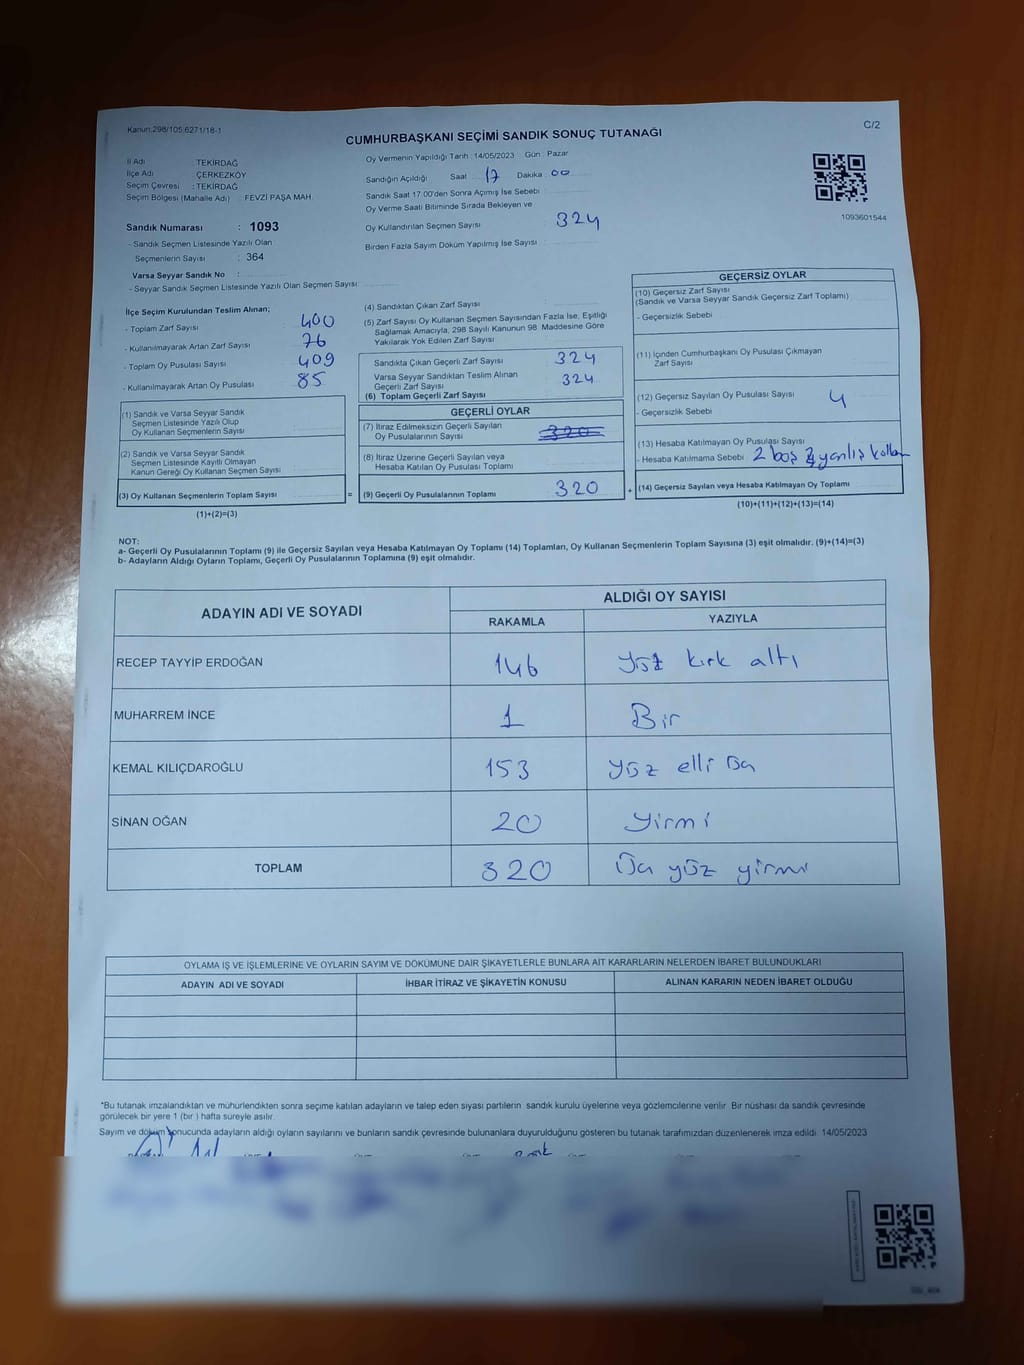 Kanun:298/105,6271/18-1
C/2
CUMHURBAŞKANI SEÇİMİ SANDIK SONUÇ TUTANAĞI
İl Adı : TEKİRDAĞ
İlçe Adı : ÇERKEZKÖY
Seçim Çevresi : TEKİRDAĞ
Seçim Bölgesi (Mahalle Adı) : FEVZİ PAŞA MAH.
Sandık Numarası : 1093
- Sandık Seçmen Listesinde Yazılı Olan
Seçmenlerin Sayısı : 364
Varsa Seyyar Sandık No :
- Seyyar Sandık Seçmen Listesinde Yazılı Olan Seçmen Sayısı:
Oy Vermenin Yapıldığı Tarih : 14/05/2023 Gün : Pazar
Sandığın Açıldığı Saat 17 Dakika : 00
Sandık Saat 17.00'den Sonra Açımış İse Sebebi :
Oy Verme Saati Bitiminde Sırada Bekleyen ve
Oy Kullandırılan Seçmen Sayısı 324
Birden Fazla Sayım Döküm Yapılmış İse Sayısı :
1093601544
İlçe Seçim Kurulundan Teslim Alınan;
- Toplam Zarf Sayısı : 400
- Kullanılmayarak Artan Zarf Sayısı : 76
- Toplam Oy Pusulası Sayısı : 409
- Kullanılmayarak Artan Oy Pusulası : 85
(1) Sandık ve Varsa Seyyar Sandık
Seçmen Listesinde Yazılı Olup
Oy Kullanan Seçmenlerin Sayısı
(2) Sandık ve Varsa Seyyar Sandık
Seçmen Listesinde Kayıtlı Olmayan
Kanun Gereği Oy Kullanan Seçmen Sayısı
(3) Oy Kullanan Seçmenlerin Toplam Sayısı
=
(1)+(2)=(3)
(4) Sandıktan Çıkan Zarf Sayısı :
(5) Zarf Sayısı Oy Kullanan Seçmen Sayısından Fazla İse, Eşitliği
Sağlamak Amacıyla, 298 Sayılı Kanunun 98. Maddesine Göre
Yakılarak Yok Edilen Zarf Sayısı :
Sandıkta Çıkan Geçerli Zarf Sayısı : 324
Varsa Seyyar Sandıktan Teslim Alınan
Geçerli Zarf Sayısı : 324
(6) Toplam Geçerli Zarf Sayısı :
GEÇERLİ OYLAR
(7) İtiraz Edilmeksizin Geçerli Sayılan
Oy Pusulalarının Sayısı 320
(8) İtiraz Üzerine Geçerli Sayılan veya
Hesaba Katılan Oy Pusulası Toplamı
(9) Geçerli Oy Pusulalarının Toplamı 320
+
GEÇERSİZ OYLAR
(10) Geçersiz Zarf Sayısı
(Sandık ve Varsa Seyyar Sandık Geçersiz Zarf Toplamı)
- Geçersizlik Sebebi :
(11) İçinden Cumhurbaşkanı Oy Pusulası Çıkmayan
Zarf Sayısı
(12) Geçersiz Sayılan Oy Pusulası Sayısı : 4
- Geçersizlik Sebebi :
(13) Hesaba Katılmayan Oy Pusulası Sayısı
- Hesaba Katılmama Sebebi : 2 boş 2 yanlış
(14) Geçersiz Sayılan veya Hesaba Katılmayan Oy Toplamı
(10)+(11)+(12)+(13)=(14)
NOT:
a- Geçerli Oy Pusulalarının Toplamı (9) ile Geçersiz Sayılan veya Hesaba Katılmayan Oy Toplamı (14) Toplamları, Oy Kullanan Seçmenlerin Toplam Sayısına (3) eşit olmalıdır. (9)+(14)=(3)
b- Adayların Aldığı Oyların Toplamı, Geçerli Oy Pusulalarının Toplamına (9) eşit olmalıdır.
ADAYIN ADI VE SOYADI
ALDIĞI OY SAYISI
RAKAMLA YAZIYLA
RECEP TAYYİP ERDOĞAN 146 yüz kırk altı
MUHARREM İNCE 1 Bir
KEMAL KILIÇDAROĞLU 153 yüz elli üç
SİNAN OĞAN 20 yirmi
TOPLAM 320 Üç yüz yirmi
OYLAMA İŞ VE İŞLEMLERİNE VE OYLARIN SAYIM VE DÖKÜMÜNE DAİR ŞİKAYETLERLE BUNLARA AİT KARARLARIN NELERDEN İBARET BULUNDUKLARI
ADAYIN ADI VE SOYADI İHBAR İTİRAZ VE ŞİKAYETİN KONUSU ALINAN KARARIN NEDEN İBARET OLDUĞU
*Bu tutanak imzalandıktan ve mühürlendikten sonra seçime katılan adayların ve talep eden siyasi partilerin sandık kurulu üyelerine veya gözlemcilerine verilir. Bir nüshası da sandık çevresinde
görülecek bir yere 1 (bir ) hafta süreyle asılır.
Sayım ve döküm sonucunda adayların aldığı oyların sayılarını ve bunların sandık çevresinde bulunanlara duyurulduğunu gösteren bu tutanak tarafımızdan düzenlenerek imza edildi. 14/05/2023